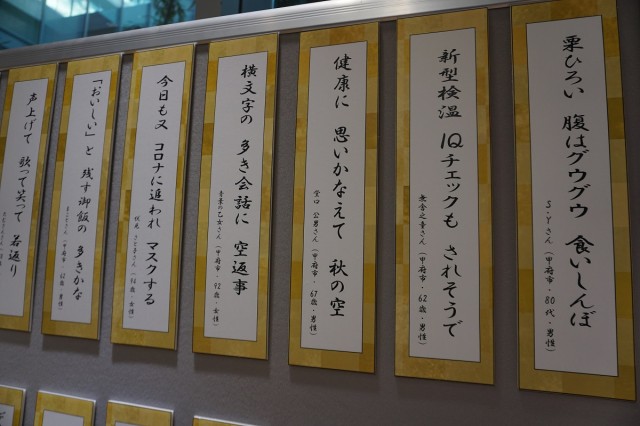 栗ひろい 腹はグウグウ 食いしんぼ
S・Yさん(甲府市・80代・男性)
新型検温 IQチェックも されそうで
(甲府市・62歳・男性)
健康に 思いかなえて 秋の空
堂口 公男さん(甲府市・67歳・男性)
横文字の 多き会話に 空返事
乙女さん(甲府市・92歳・女性)
今日も又 コロナに追われ マスクする
「おいしい」と 残す御飯の 多きかな
(甲府市・62歳・男性)
声上げて 歌って笑って 若返り